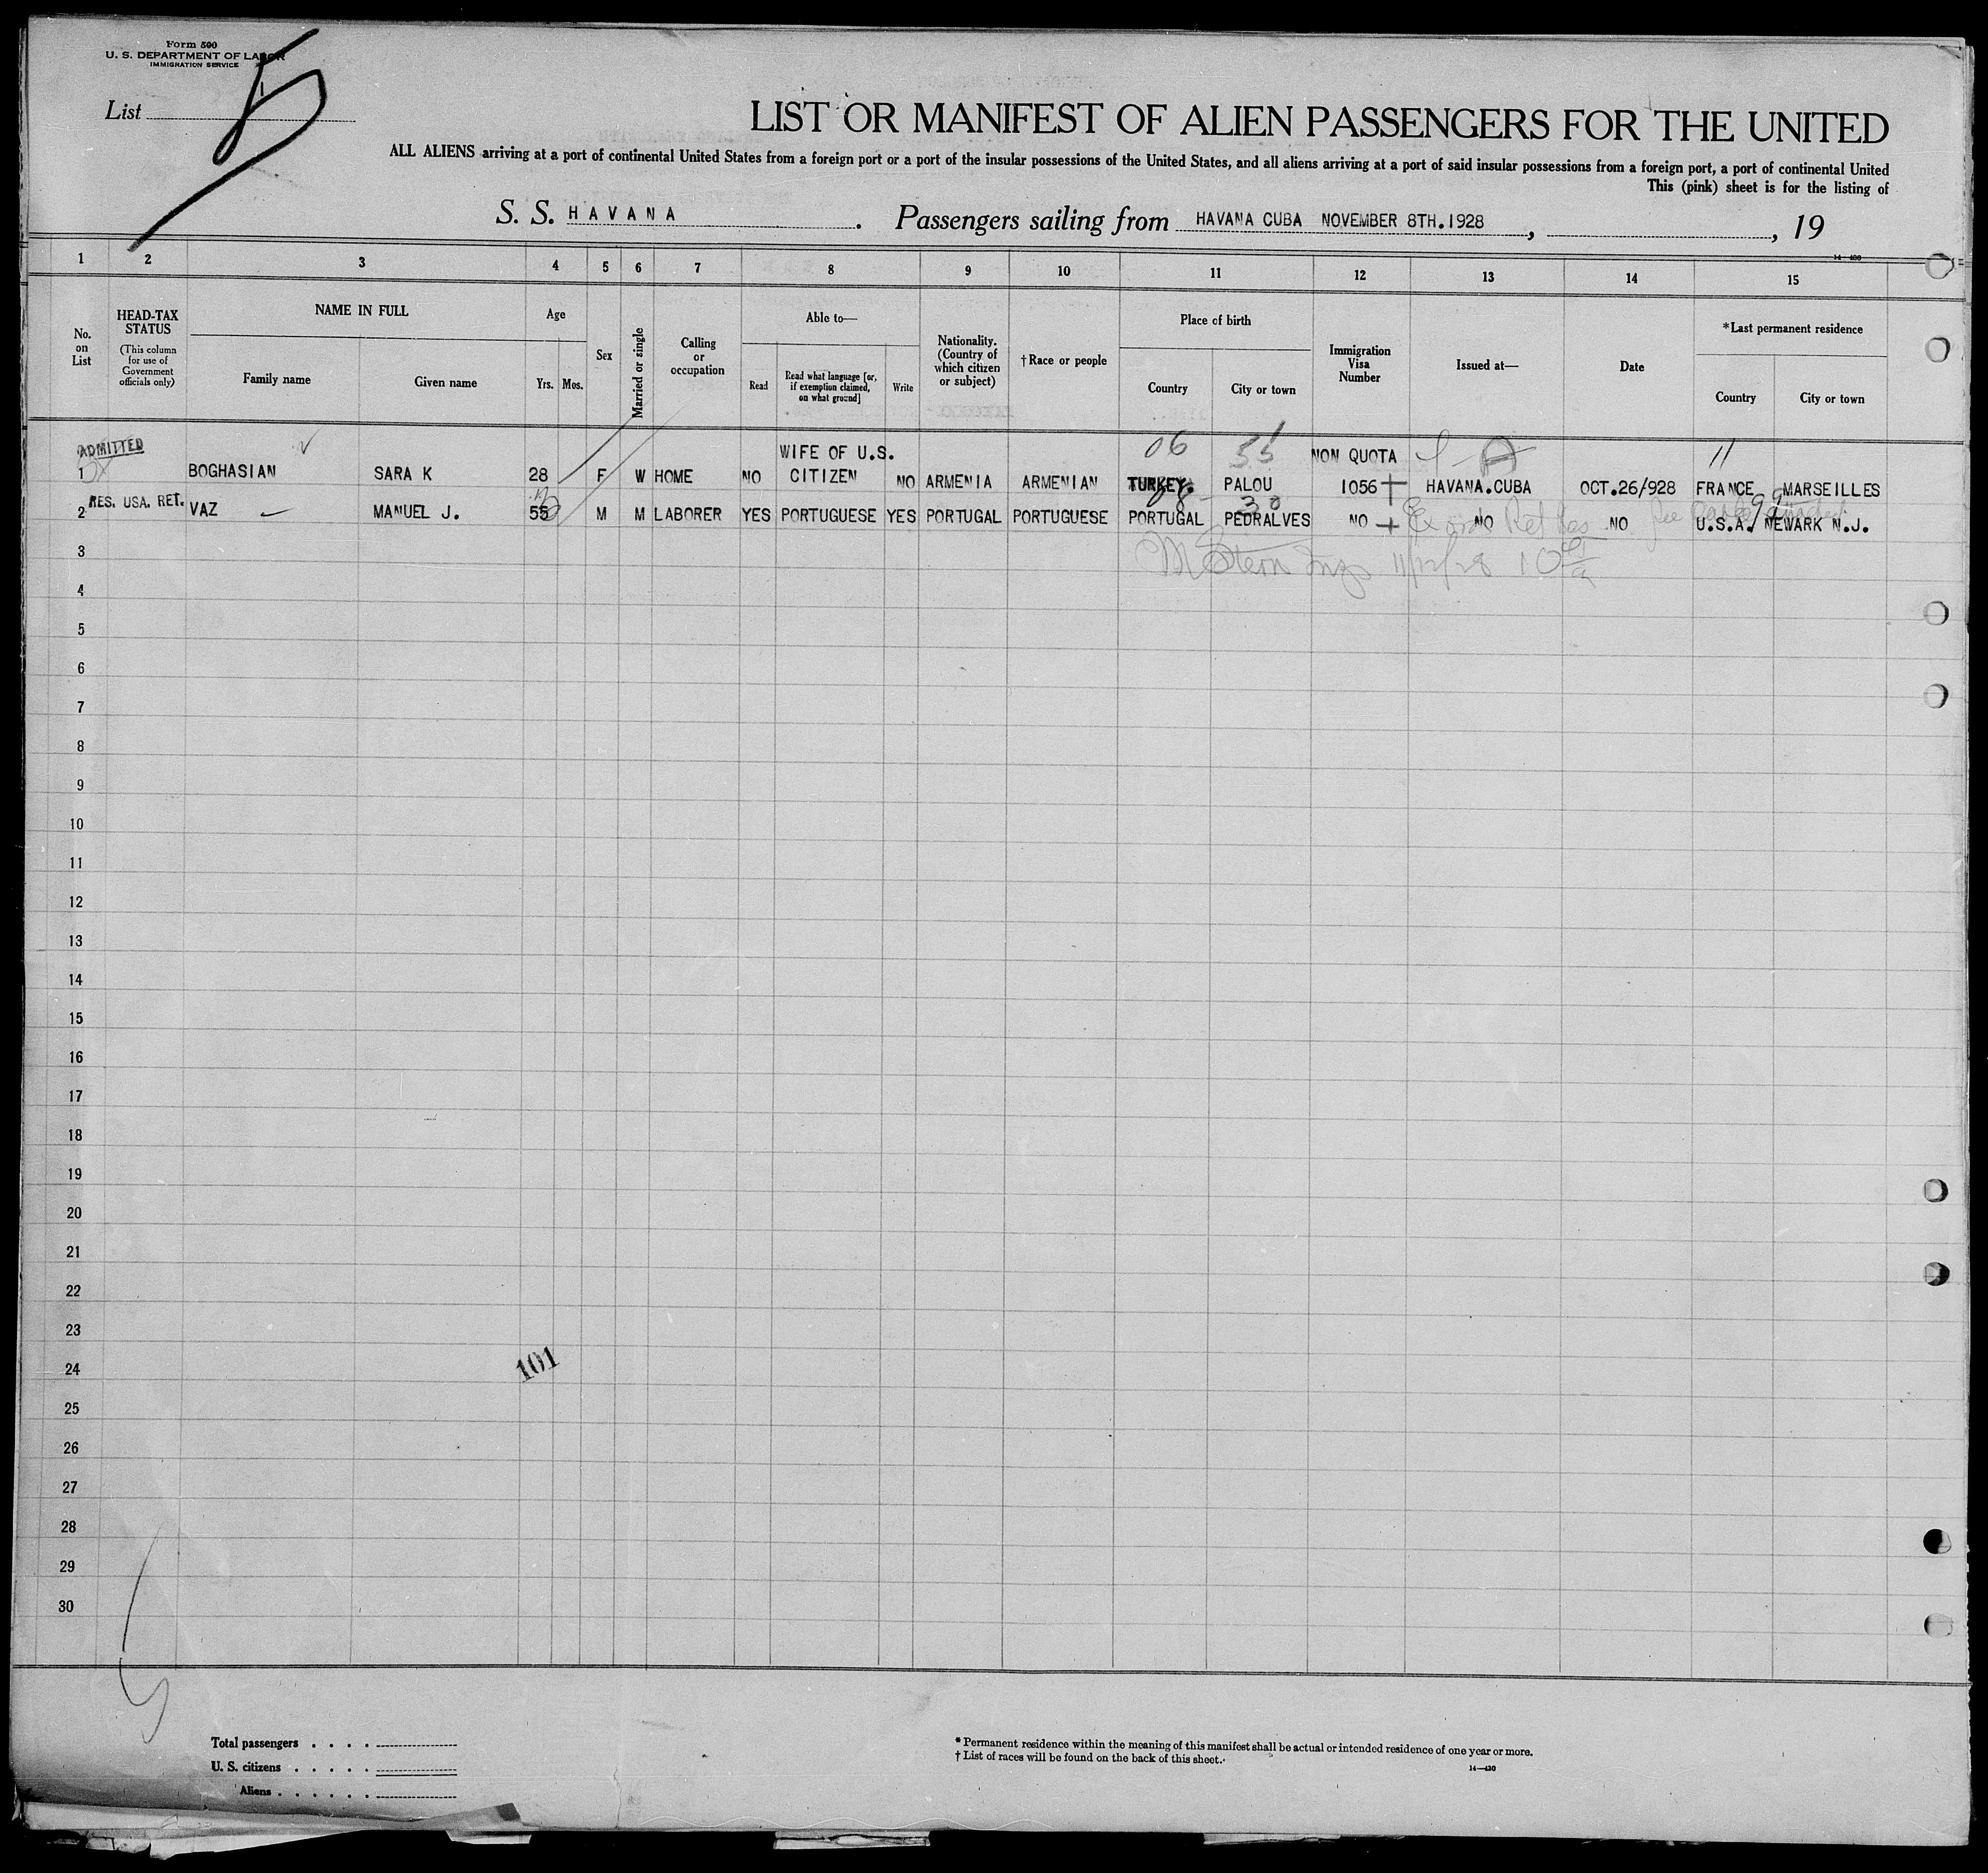 Form 500
U. S. DEPARTMENT OF LABOR
IMMIGRATION SERVICE
List 5
LIST OR MANIFEST OF ALIEN PASSENGERS FOR THE UNITED
ALL ALIENS arriving at a port of continental United States from a foreign port or a port of the insular possessions of the United States, and all aliens arriving at a port of said insular possessions from a foreign port, a port of continental United
This (pink) sheet is for the listing of
S. S. HAVANA. Passengers sailing from HAVANA CUBA NOVEMBER 8TH.1928, , 19
1 2 3 4 5 6 7 8 9 10 11 12 13 14 15
No. on List
HEAD-TAX STATUS
(This column for use of Government officials only)
NAME IN FULL
Family name Given name
Age
Yrs. Mos.
Sex
Married or single
Calling or occupation
Able to—
Read
Read what language [or, if exemption claimed, on what ground]
Write
Nationality. (Country of which citizen or subject)
†Race or people
Place of birth
Country City or town
Immigration Visa Number
Issued at—
Date
*Last permanent residence
Country City or town
ADMITTED WIFE OF U.S. 06 NON QUOTA 11
1 BOGHASIAN SARA K 28 F W HOME NO CITIZEN NO ARMENIA ARMENIAN TURKEY. PALOU 1056 HAVANA.CUBA OCT.26/928 FRANCE MARSEILLES
RES. USA. RET. 30 99
2 VAZ MANUEL J. 55 M M LABORER YES PORTUGUESE YES PORTUGAL PORTUGUESE PORTUGAL PEDRALVES NO NO NO U.S.A. NEWARK N.J.
3 M Stern Insp 11/12/28
4
5
6
7
8
9
10
11
12
13
14
15
16
17
18
19
20
21
22
23
24 101
25
26
27
28
29
30
Total passengers . . . .
U. S. citizens . . . . .
Aliens . . . . . .
* Permanent residence within the meaning of this manifest shall be actual or intended residence of one year or more.
† List of races will be found on the back of this sheet.
14—430